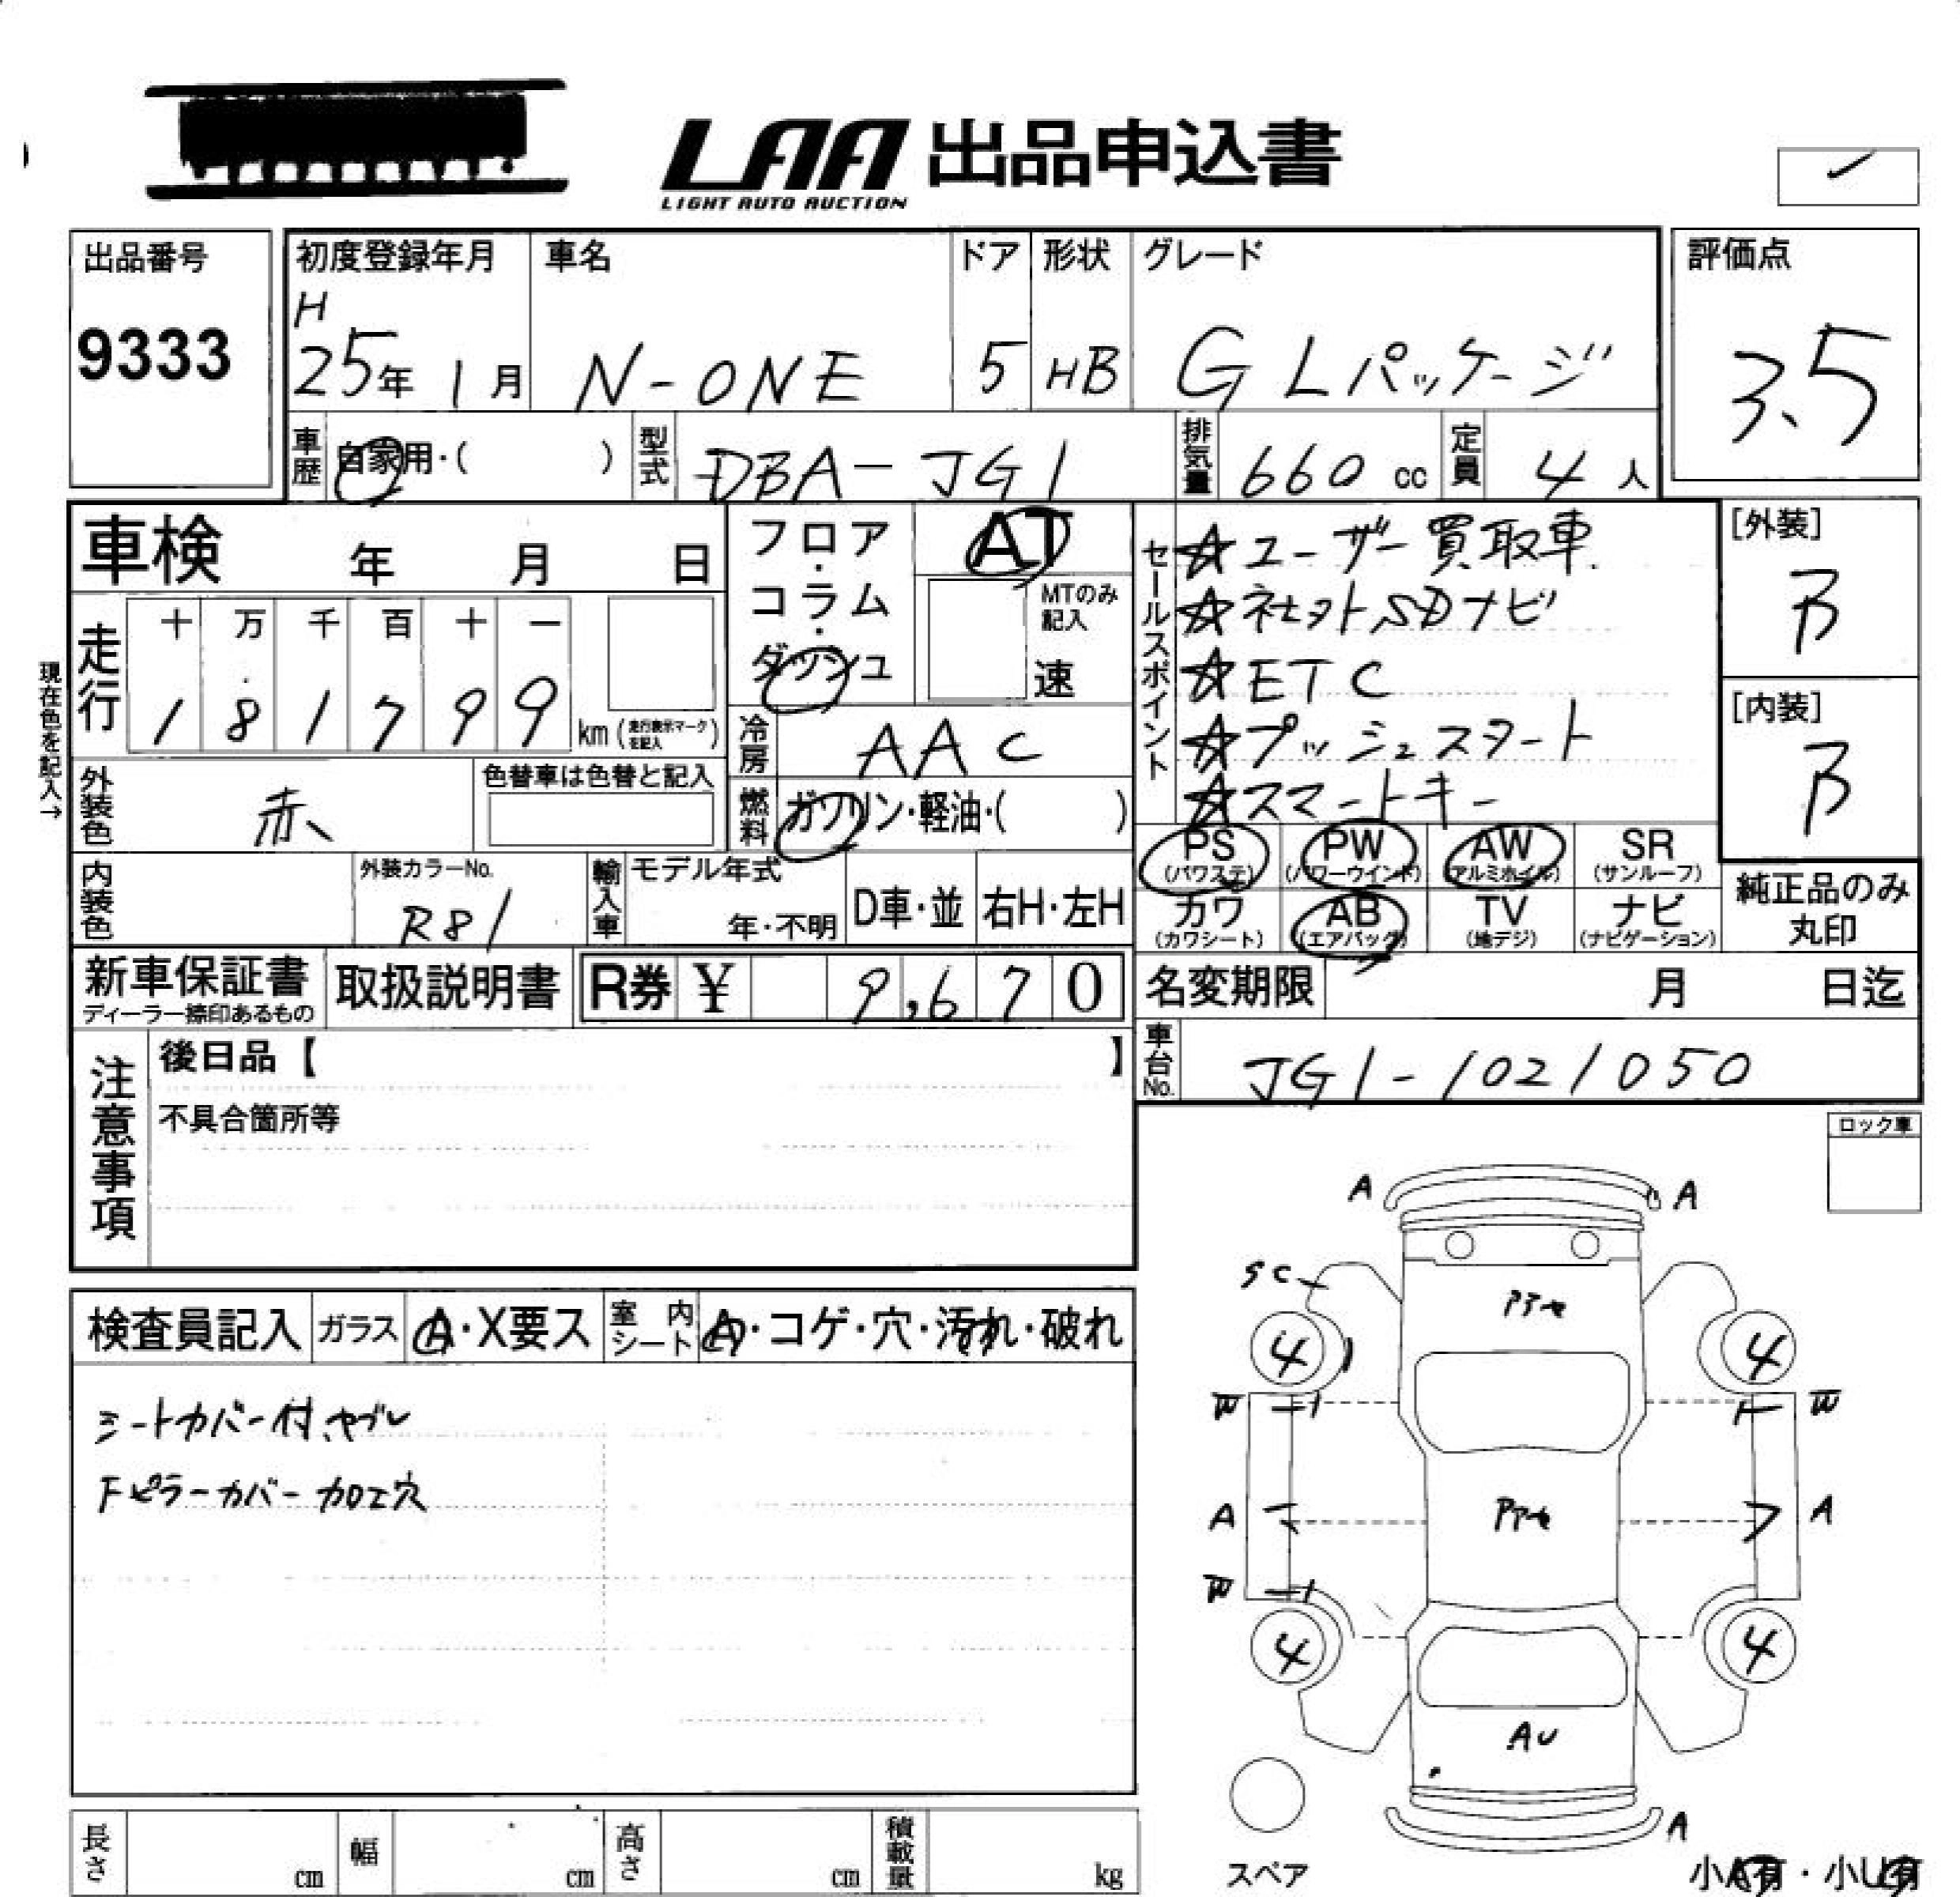 LAA 出品申込書
LIGHT AUTO AUCTION
出品番号
9333
初度登録年月
H
25年 1月
車名
N-ONE
ドア
5
形状
HB
グレード
G Lパッケージ
評価点
3.5
車歴
自家用・( )
型式
DBA-JG1
排気量
660 cc
定員
4 人
車検 年 月 日
現在色を記入→
走行
十 万 千 百 十 一
1 8 1 7 9 9 km (走行表示マークを記入)
フロア・コラム・ダッシュ
AT
MTのみ記入
速
冷房
AAC
燃料
ガソリン・軽油・( )
セールスポイント
☆ユーザー買取車
☆社外SDナビ
☆ETC
☆プッシュスタート
☆スマートキー
[外装]
B
[内装]
B
外装色
赤
色替車は色替と記入
内装色
外装カラーNo.
R81
輸入車
モデル年式
年・不明
D車・並
右H・左H
PS (パワステ)
PW (パワーウインド)
AW (アルミホイル)
SR (サンルーフ)
カワ (カワシート)
AB (エアバッグ)
TV (地デジ)
ナビ (ナビゲーション)
純正品のみ
丸印
新車保証書
ディーラー捺印あるもの
取扱説明書
R券 ¥ 9,670
名変期限 月 日迄
車台No.
JG1-1021050
注意事項
後日品【 】
不具合箇所等
ロック車
検査員記入
ガラス
A・X要ス
室内シート
A・コゲ・穴・汚れ・破れ
シートカバー付、ヤブレ
Fピラーカバー加工穴
A A
SC
4 4
W W
A A
W
4 4
AU
A
スペア
小A有・小U有
長さ cm
幅 cm
高さ cm
積載量 kg